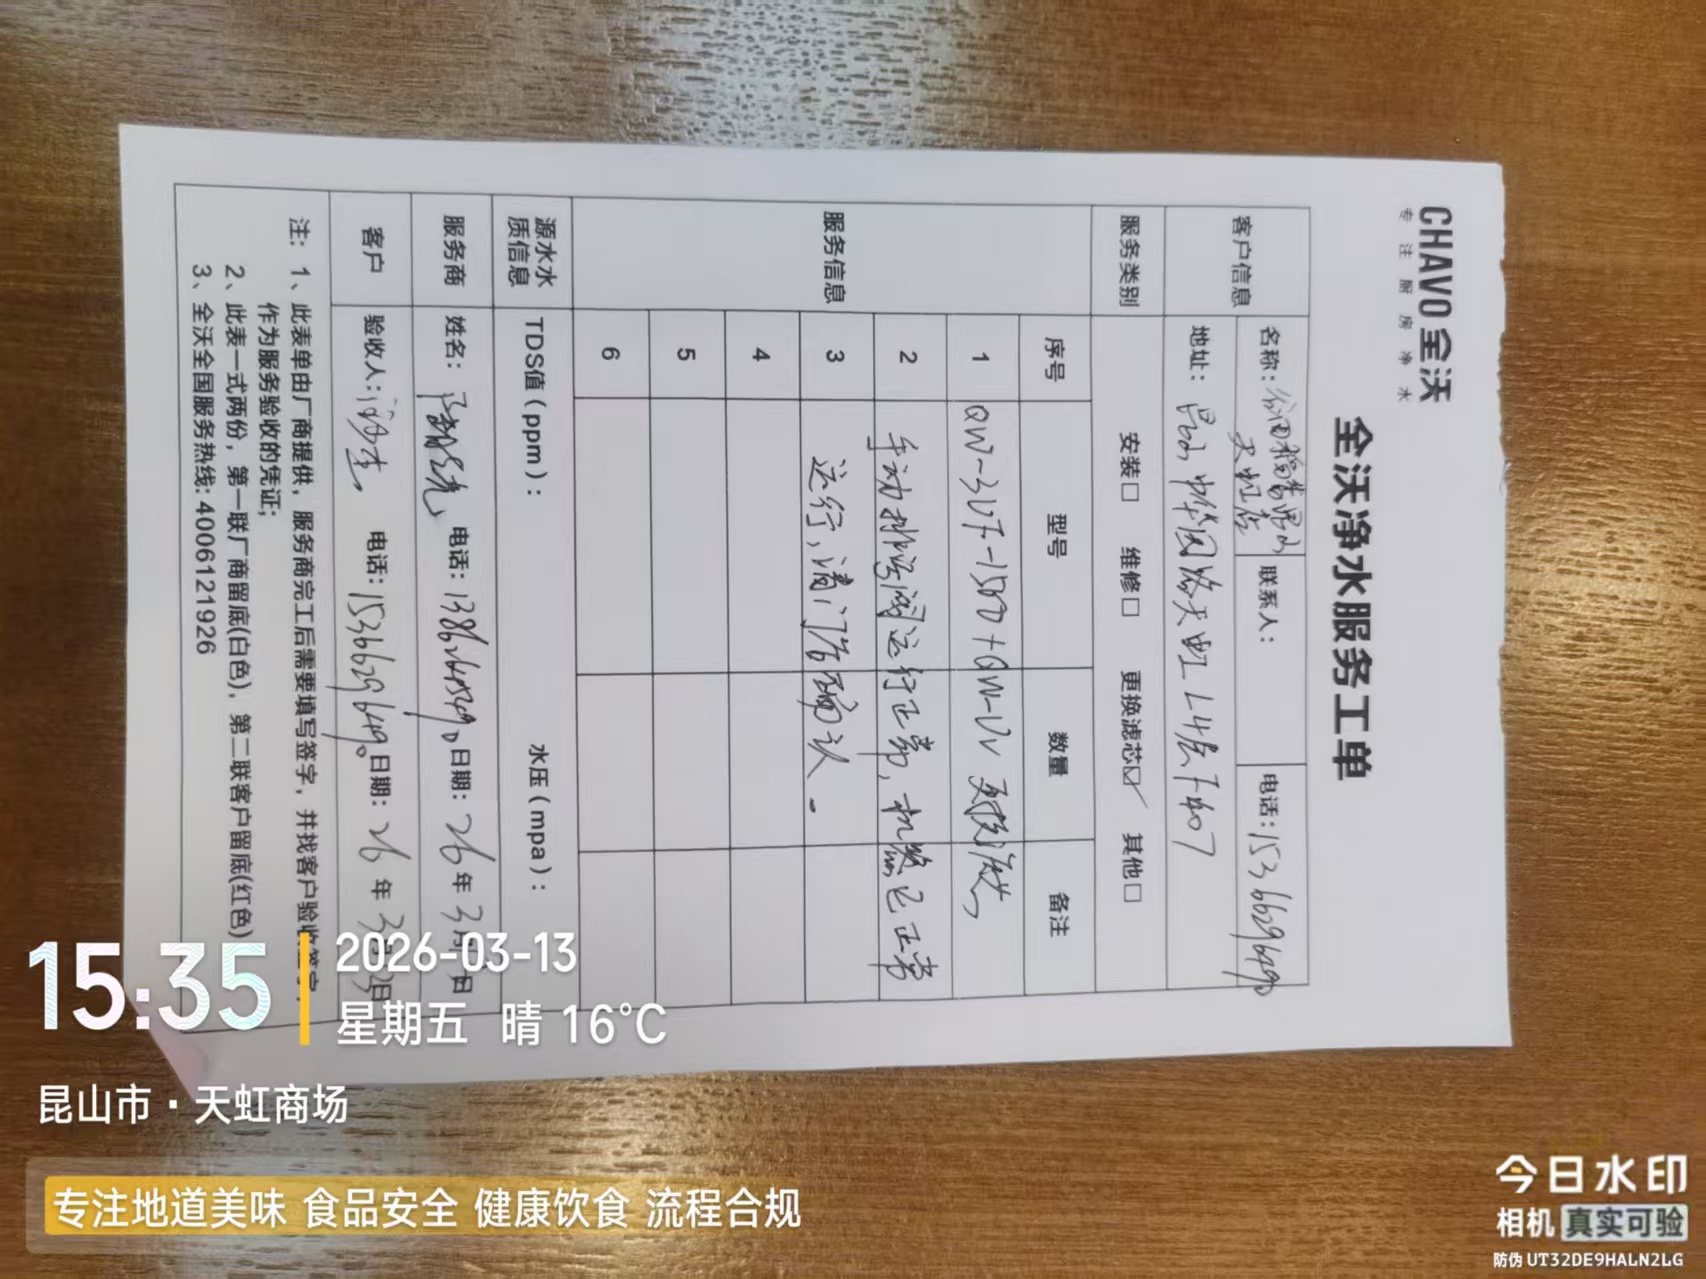 CHAVO 全沃
专注厨房净水
全沃净水服务工单
客户信息
名称：谷田稻香昆山天虹店
联系人：
电话：15366296490
地址：昆山中华园路天虹L4层F407
服务类别
安装□ 维修□ 更换滤芯☑ 其他□
服务信息
序号 型号 数量 备注
1 QW-3UF-1500+QW-UV 更换滤芯，
2 手动排污阀运行正常，机器已正常
3 运行，请门店确认。
4
5
6
源水水质信息
TDS值（ppm）： 水压（mpa）：
服务商
姓名： 电话： 日期：26年3月 日
客户
验收人： 电话：15366296490 日期：26年3月 日
注：1、此表单由厂商提供，服务商完工后需要填写签字，并找客户验收签字，
作为服务验收的凭证；
2、此表一式两份，第一联厂商留底(白色)，第二联客户留底(红色)
3、全沃全国服务热线：4006121926
15:35
2026-03-13
星期五 晴 16°C
昆山市·天虹商场
专注地道美味 食品安全 健康饮食 流程合规
今日水印
相机 真实可验
防伪 UT32DE9HALN2LG